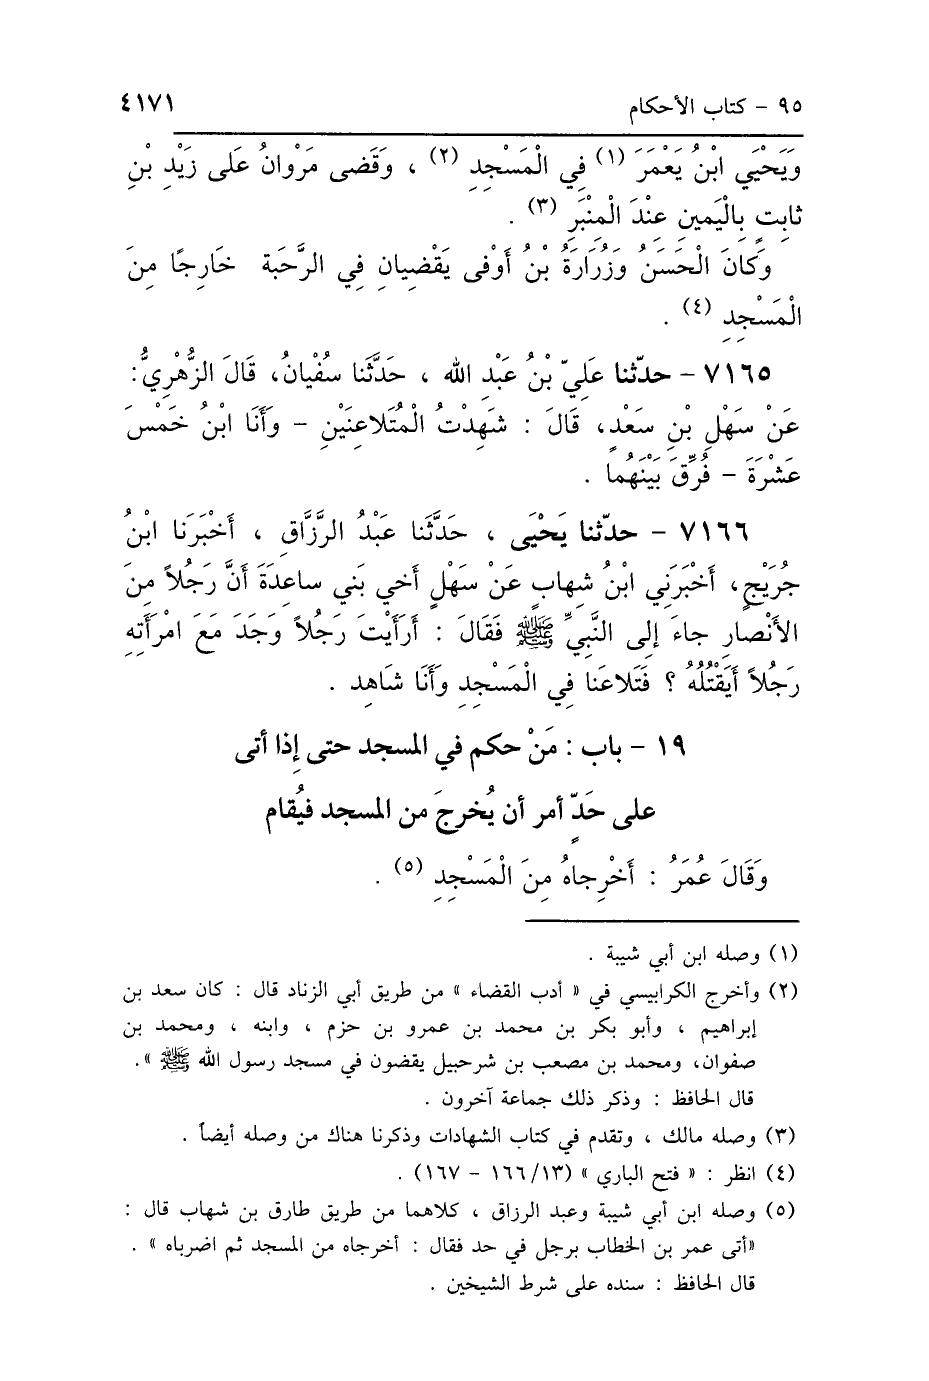 ٩٥ - كتاب الأحكام ٤١٧١
وَيَحْيَي ابْنُ يَعْمَرَ (١) فِي الْمَسْجِدِ (٢) ، وَقَضى مَرْوانُ عَلى زَيْدِ بْنِ
ثابِتٍ بِالْيَمينِ عِنْدَ الْمِنْبَرِ (٣) .
وَكَانَ الْحَسَنُ وَزُرَارَةُ بْنُ أَوْفى يَقْضِيانِ فِي الرَّحَبَة خَارِجًا مِنَ
الْمَسْجِدِ (٤) .
٧١٦٥ - حدّثنا عَلَيّ بْنُ عَبْدِ الله ، حَدَّثَنا سُفْيانُ، قَالَ الزُّهْرِيُّ:
عَنْ سَهْلِ بْنِ سَعْدٍ، قَالَ : شَهِدْتُ الْمُتَلاعِنَيْنِ - وَأَنَا ابْنُ خَمْسَ
عَشْرَةَ - فُرِّقَ بَيْنَهُما .
٧١٦٦ - حدّثنا يَحْيَى ، حَدَّثَنا عَبْدُ الرَّزَّاقِ ، أَخْبَرَنا ابْنُ
جُرَيْجٍ، أَخْبَرَنِي ابْنُ شِهابٍ عَنْ سَهْلٍ أخي بَني ساعِدَةَ أَنَّ رَجُلاً مِنَ
الأَنْصارِ جاءَ إلى النَّبِيِّ ﷺ فَقَالَ : أَرَأَيْتَ رَجُلاً وَجَدَ مَعَ امْرَأَتِهِ
رَجُلاً أَيَقْتُلُهُ ؟ فَتَلاعَنا فِي الْمَسْجِدِ وَأَنَا شَاهِد .
١٩ - باب : مَنْ حكم في المسجد حتى إِذا أتى
على حَدٍّ أمر أن يُخرجَ من المسجد فيُقام
وَقَالَ عُمَرُ : أَخْرِجاهُ مِنَ الْمَسْجِدِ (٥) .
(١) وصله ابن أبي شيبة .
(٢) وأخرج الكرابيسي في « أدب القضاء » من طريق أبي الزناد قال : كان سعد بن
إبراهيم ، وأبو بكر بن محمد بن عمرو بن حزم ، وابنه ، ومحمد بن
صفوان، ومحمد بن مصعب بن شرحبيل يقضون في مسجد رسول الله ﷺ ».
قال الحافظ : وذكر ذلك جماعة آخرون .
(٣) وصله مالك ، وتقدم في كتاب الشهادات وذكرنا هناك من وصله أيضاً .
(٤) انظر : « فتح الباري » (١٣/ ١٦٦ - ١٦٧) .
(٥) وصله ابن أبي شيبة وعبد الرزاق ، كلاهما من طريق طارق بن شهاب قال :
«أتى عمر بن الخطاب برجل في حد فقال : أخرجاه من المسجد ثم اضرباه » .
قال الحافظ : سنده على شرط الشيخين .